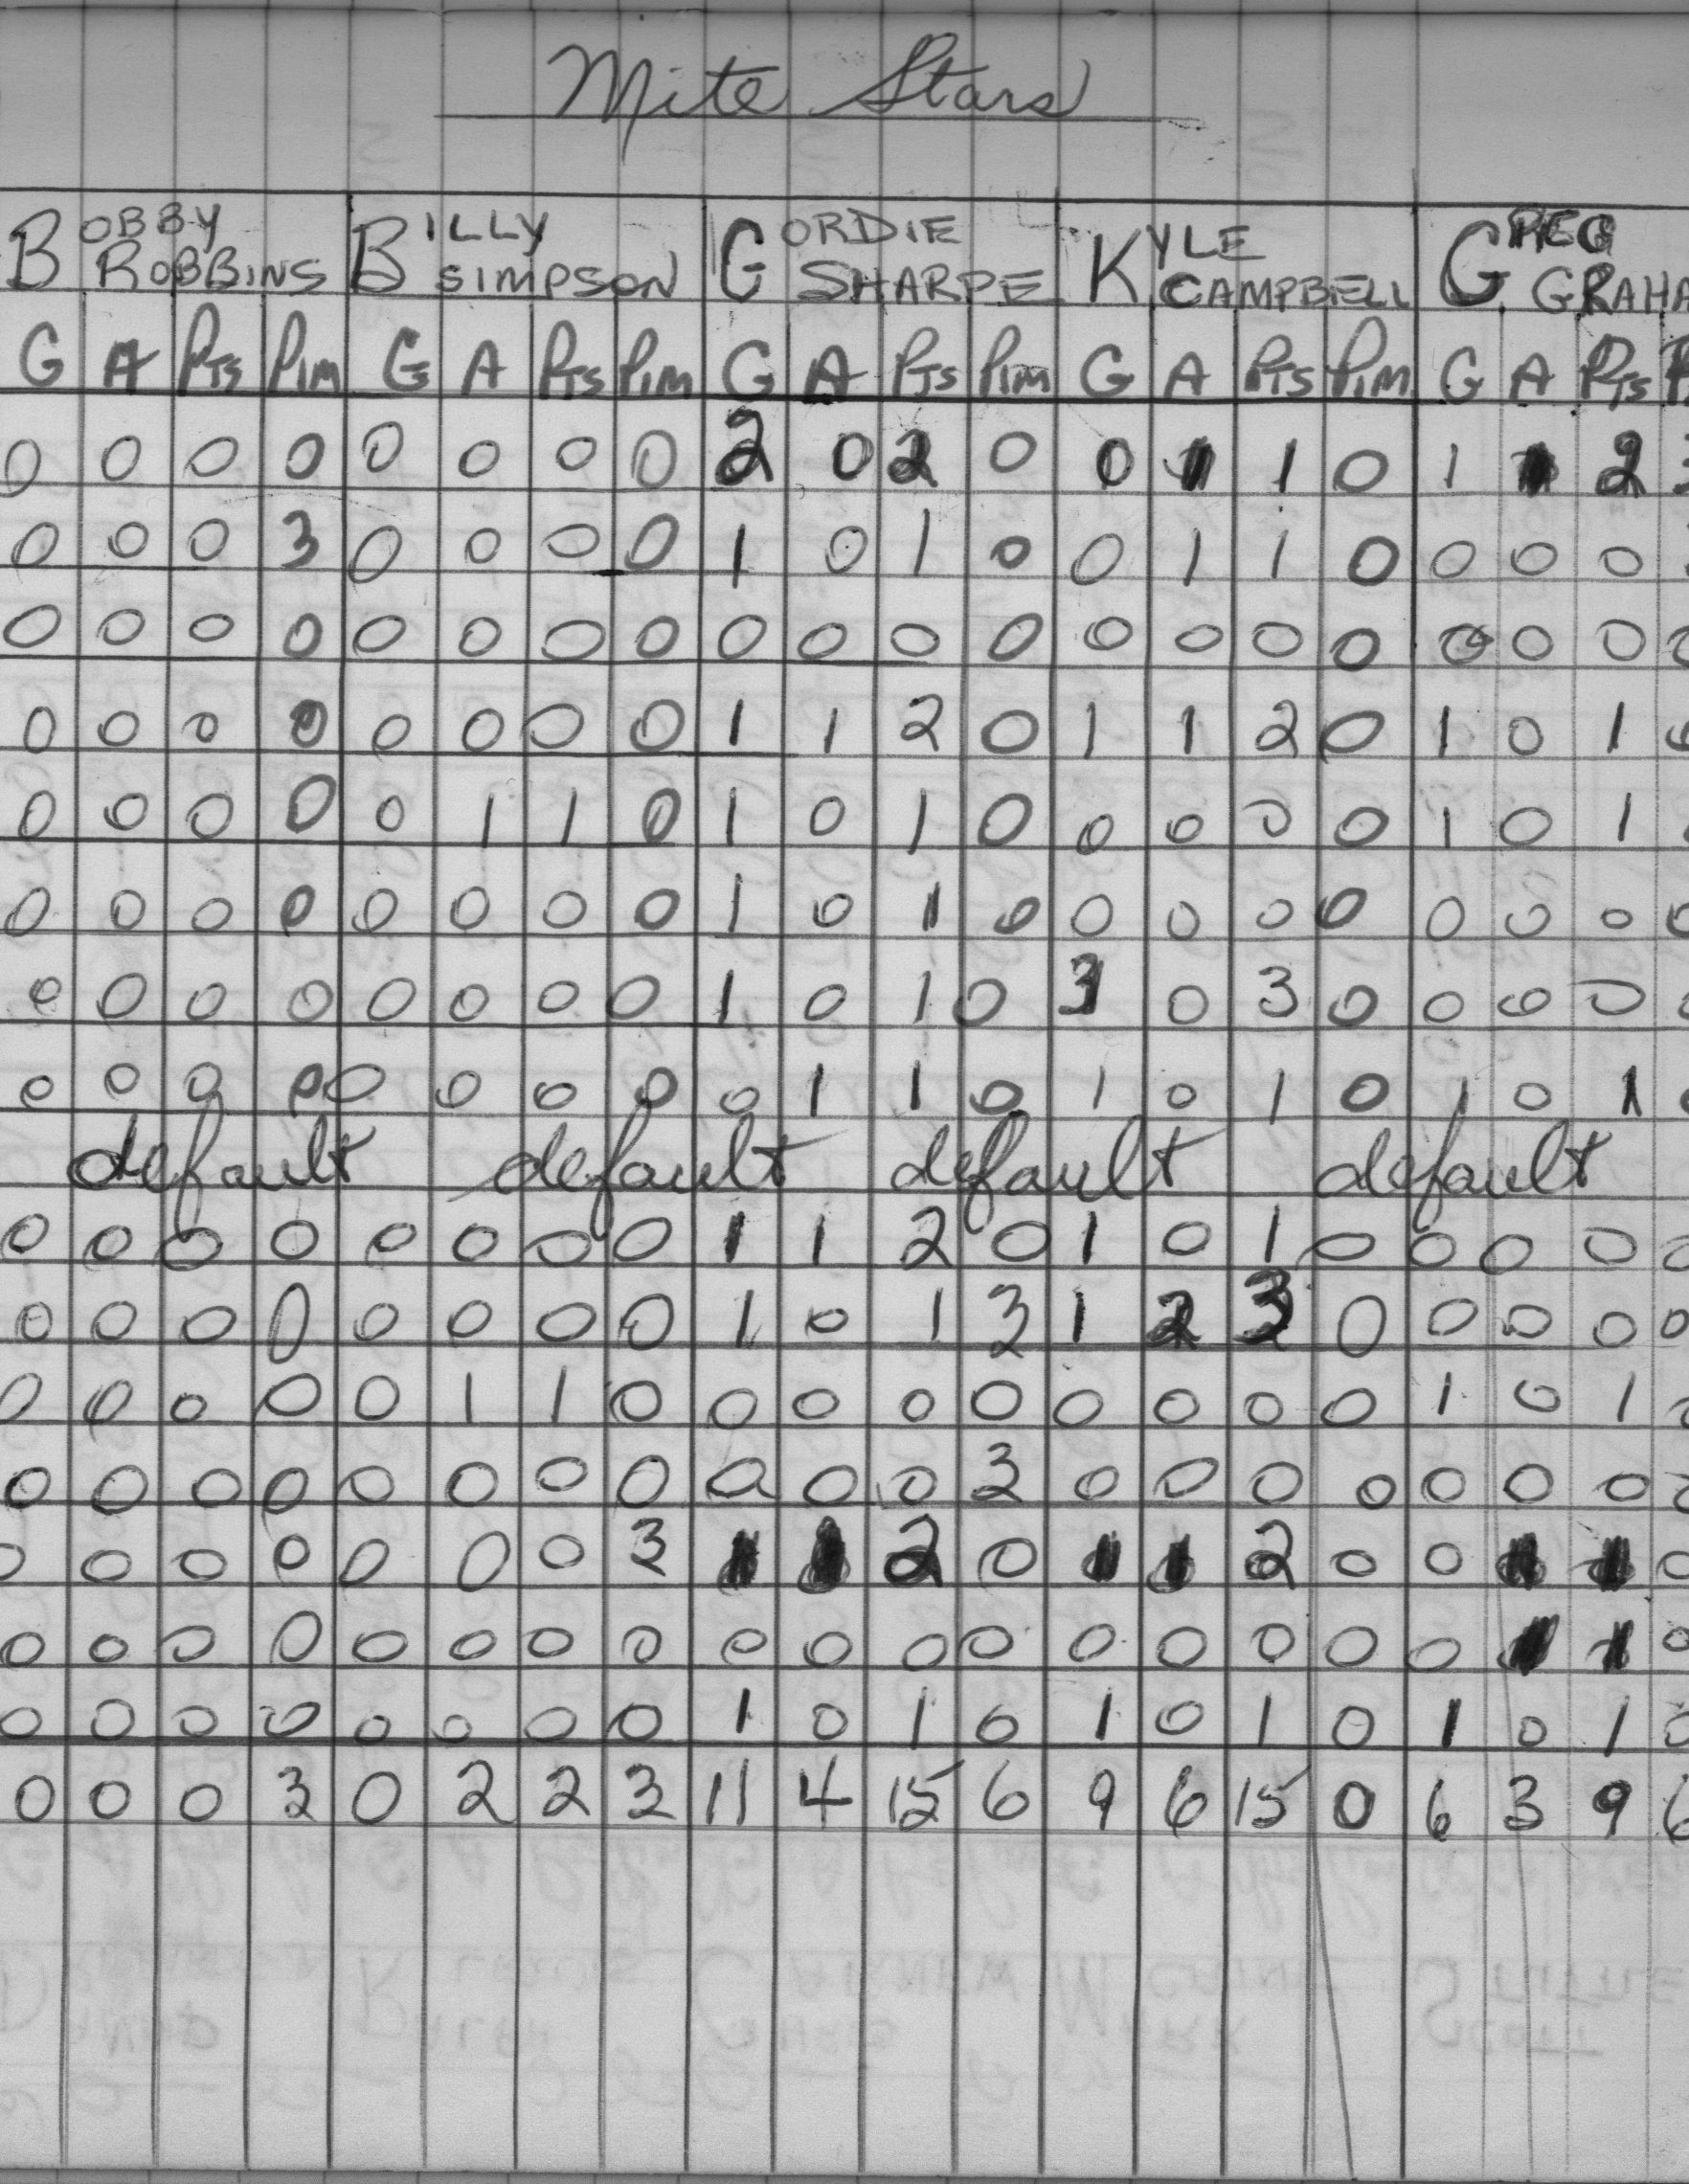 Mite Stars
BOBBY ROBBINS BILLY SIMPSON GORDIE SHARPE KYLE CAMPBELL GREG GRAHA
G A PTS PIM G A PTS PIM G A PTS PIM G A PTS PIM G A PTS P
0 0 0 0 0 0 0 0 2 0 2 0 0 1 1 0 1 1 2 3
0 0 0 3 0 0 0 0 1 0 1 0 0 1 1 0 0 0 0
0 0 0 0 0 0 0 0 0 0 0 0 0 0 0 0 0 0 0 0
0 0 0 0 0 0 0 0 1 1 2 0 1 1 2 0 1 0 1 0
0 0 0 0 0 1 1 0 1 0 1 0 0 0 0 0 1 0 1
0 0 0 0 0 0 0 0 1 0 1 0 0 0 0 0 0 0 0 0
0 0 0 0 0 0 0 0 1 0 1 0 3 0 3 0 0 0 0 0
0 0 0 0 0 0 0 0 0 1 1 0 1 0 1 0 1 0 1 0
default default default default
0 0 0 0 0 0 0 0 1 1 2 0 1 0 1 0 0 0 0 0
0 0 0 0 0 0 0 0 1 0 1 3 1 2 3 0 0 0 0 0
0 0 0 0 0 1 1 0 0 0 0 0 0 0 0 0 1 0 1 0
0 0 0 0 0 0 0 0 0 0 0 3 0 0 0 0 0 0 0 0
0 0 0 0 0 0 0 3 1 1 2 0 1 1 2 0 0 1 1 0
0 0 0 0 0 0 0 0 0 0 0 0 0 0 0 0 0 1 1 0
0 0 0 0 0 0 0 0 1 0 1 0 1 0 1 0 1 0 1 0
0 0 0 3 0 2 2 3 11 4 15 6 9 6 15 0 6 3 9 6